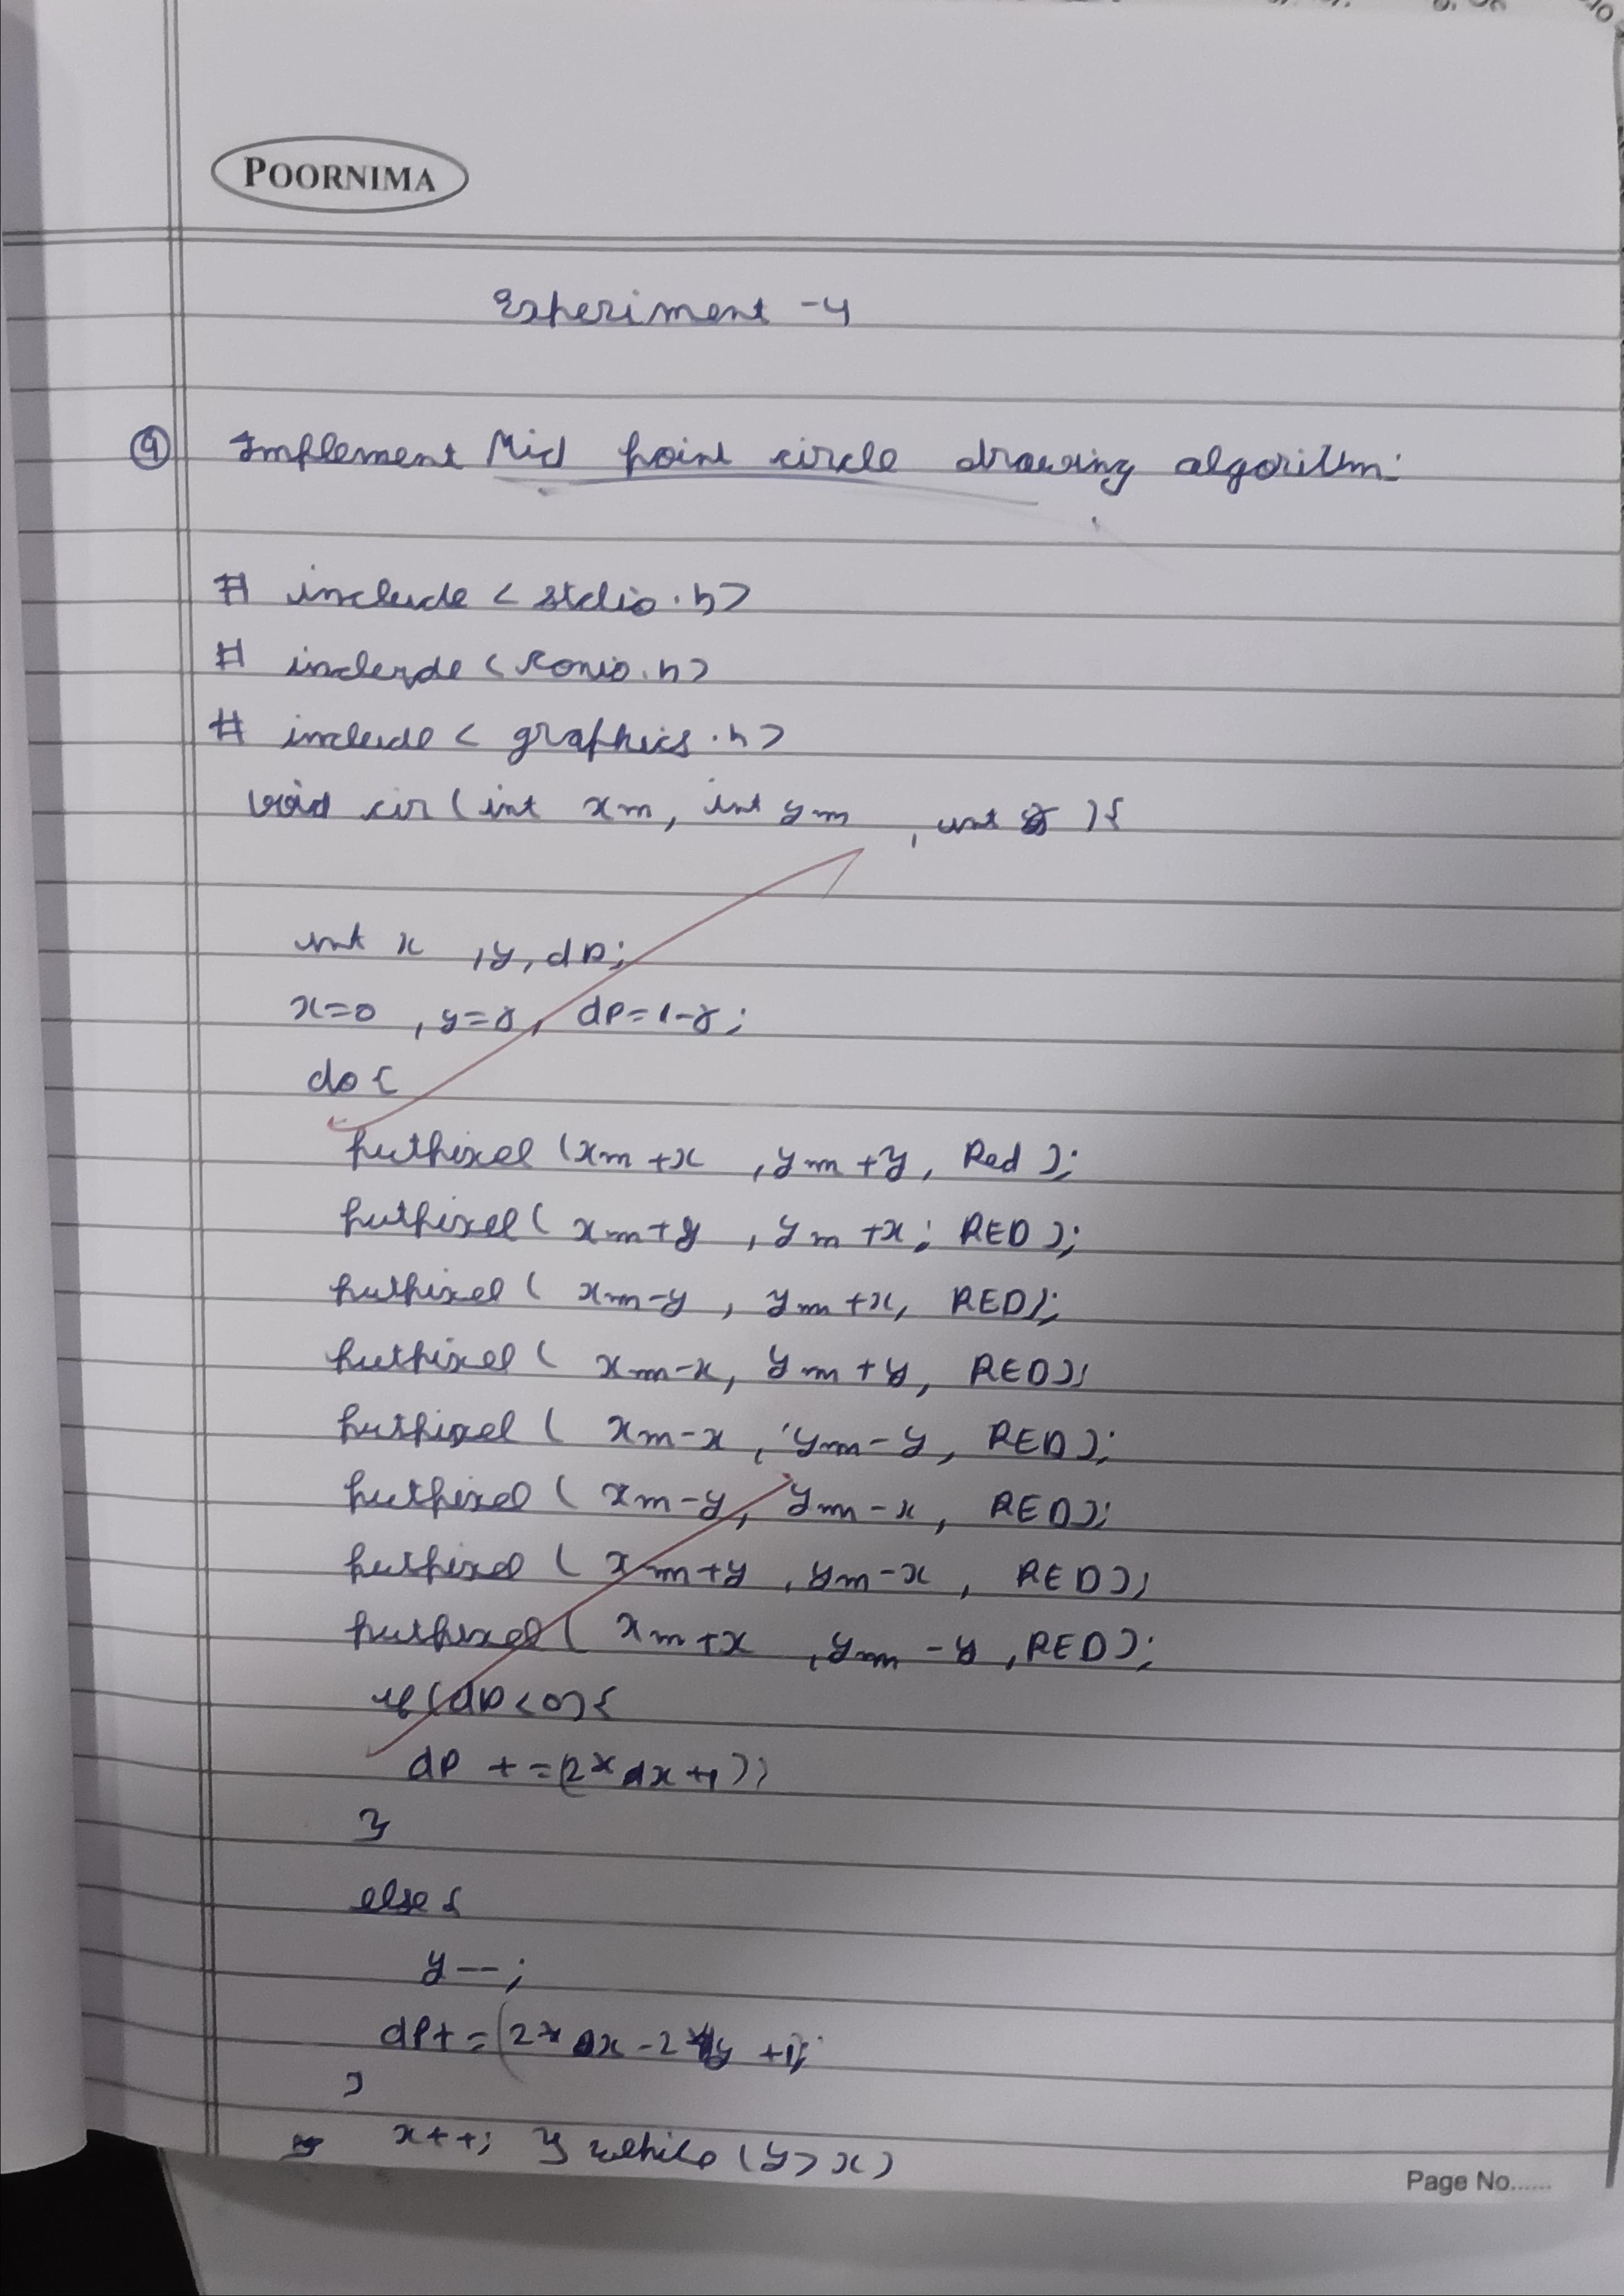 POORNIMA
Experiment -4
④ Implement Mid point circle drawing algorithm:
# include < stdio.h>
# include <conio.h>
# include < graphics.h>
void cir (int xm, int ym , int r ){
int x ,y, dp;
x=0 , y=r, dp=1-r;
do {
putpixel (xm+x ,ym+y, Red );
putpixel ( xm+y , ym+x; RED );
putpixel ( xm-y , ym+x, RED);
putpixel ( xm-x, ym+y, RED);
putpixel ( xm-x , ym-y, RED);
putpixel ( xm-y, ym-x, RED);
putpixel ( xm+y , ym-x , RED);
putpixel ( xm+x ,ym-y ,RED);
if (dp<0){
dp +=(2*dx+1);
}
else {
y--;
dp+=(2* x-2* y +1);
}
x++; } while (y>x)
Page No......